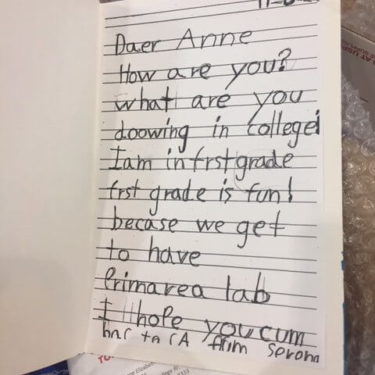 Daer Anne
How are you?
what are you
doowing in college
I am in frst grade
frst grade is fun!
becase we get
to have
Primarea lab
I hope you cum